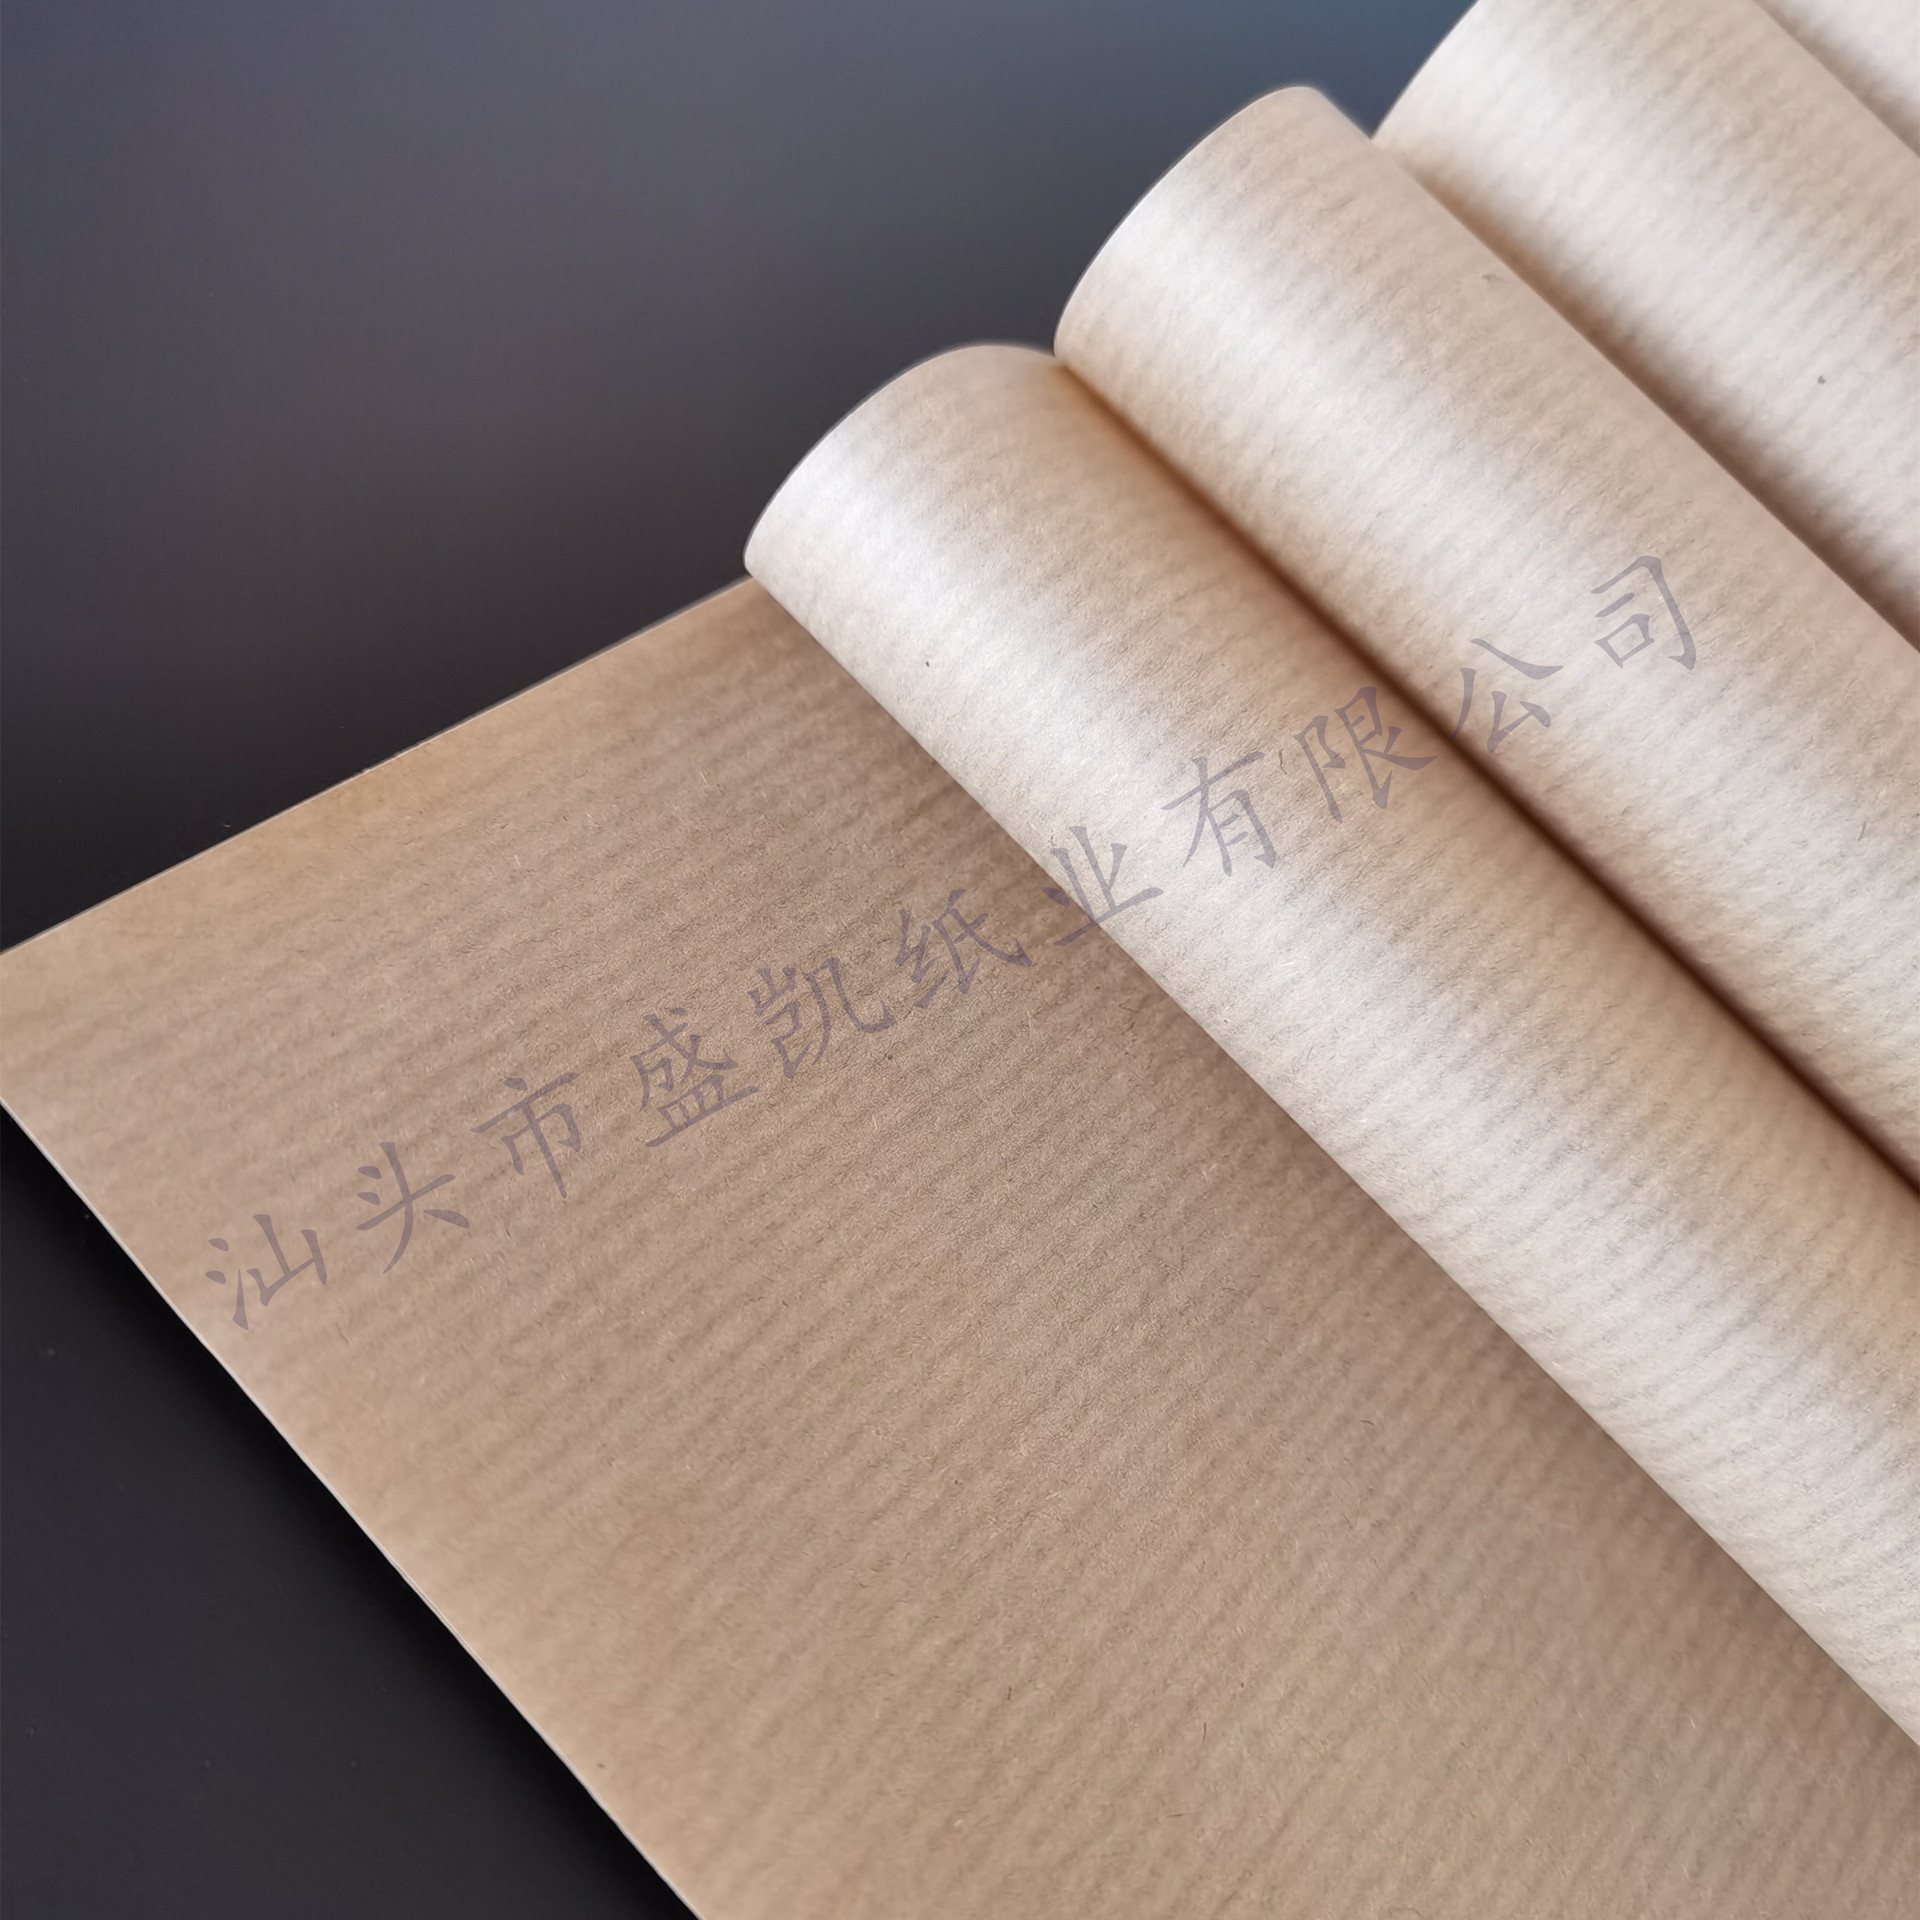 汕头市盛凯纸业有限公司